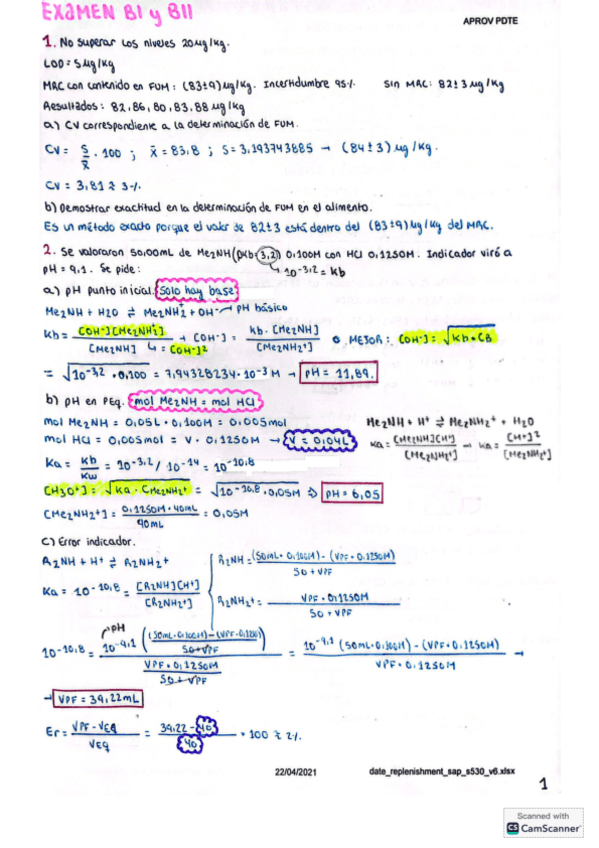 EXAMEN BI y BII
APROV PDTE
1. No superar los niveles 20 µg/kg.
LOD = 5 µg/kg
MRC con contenido en FUM: (83±9) µg/kg. Incertidumbre 95%. Sin MRC: 82±3 µg/kg
Resultados: 82, 86, 80, 83, 88 µg/kg
a) CV correspondiente a la determinación de FUM.
CV = S/x̄ · 100 ; x̄ = 83,8 ; S = 3,193743885 → (84±3) µg/kg.
CV = 3,81 ≈ 3%
b) Demostrar exactitud en la determinación de FUM en el alimento.
Es un método exacto porque el valor de 82±3 está dentro del (83±9) µg/kg del MRC.
2. Se valoraron 50,00mL de Me2NH (pKb 3,2) 0,100M con HCl 0,1250M. Indicador viró a
pH = 9,1. Se pide: ↳ 10^-3,2 = Kb
a) pH punto inicial. Solo hay base
Me2NH + H2O ⇌ Me2NH2+ + OH- → pH básico
Kb = [OH-][Me2NH2+]/[Me2NH] ↳ = [OH-]2 → [OH-] = Kb·[Me2NH]/[Me2NH2+] o MEJOR: [OH-] = √Kb·CB
= √10^-3,2 · 0,100 = 7,94328234·10^-3 M → pH = 11,89.
b) pH en PEq. mol Me2NH = mol HCl
mol Me2NH = 0,05L · 0,100M = 0,005mol
mol HCl = 0,005mol = V · 0,1250M → V = 0,04L
Me2NH + H+ ⇌ Me2NH2+ + H2O
Ka = [Me2NH][H+]/[Me2NH2+] → Ka = [H+]2/[Me2NH2+]
Ka = Kb/Kw = 10^-3,2/10^-14 = 10^-10,8
[H3O+] = √Ka · CMe2NH2+ = √10^-10,8 · 0,05M ⇒ pH = 6,05
[Me2NH2+] = 0,1250M · 40mL/90mL = 0,05M
c) Error indicador.
R2NH + H+ ⇌ R2NH2+
Ka = 10^-10,8 = [R2NH][H+]/[R2NH2+]
R2NH = (50mL · 0,100M) - (VPF · 0,1250M)/50 + VPF
R2NH2+ = VPF · 0,1250M/50 + VPF
pH
10^-10,8 = 10^-9,1 ((50mL·0,100M) - (VPF·0,1250)/50+VPF)/(VPF · 0,1250M/50 + VPF) = 10^-9,1 (50mL·0,100M) - (VPF·0,1250M)/VPF · 0,1250M →
→ VPF = 39,22mL
Er = VPF - VEQ/VEQ = 39,22 - 40/40 · 100 ≈ 2%
22/04/2021
date_replenishment_sap_s530_v6.xlsx
1
Scanned with
CS CamScanner